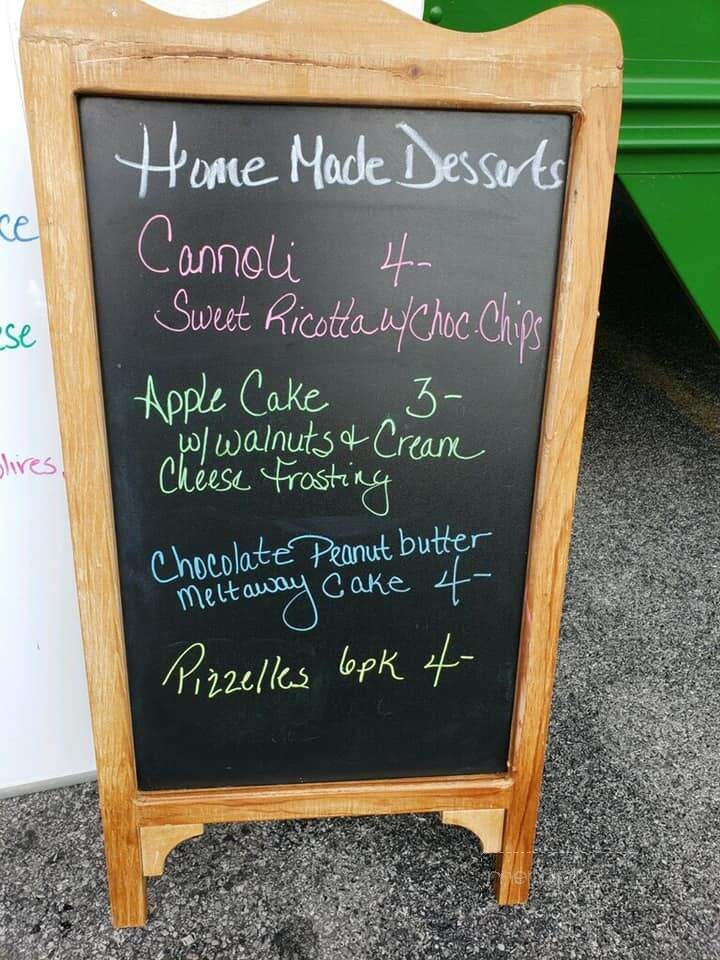 Home Made Desserts
Cannoli 4-
Sweet Ricotta w/Choc. Chips
Apple Cake 3-
w/ walnuts & Cream
Cheese Frosting
Chocolate Peanut butter
Meltaway Cake 4-
Pizzelles 6pk 4-